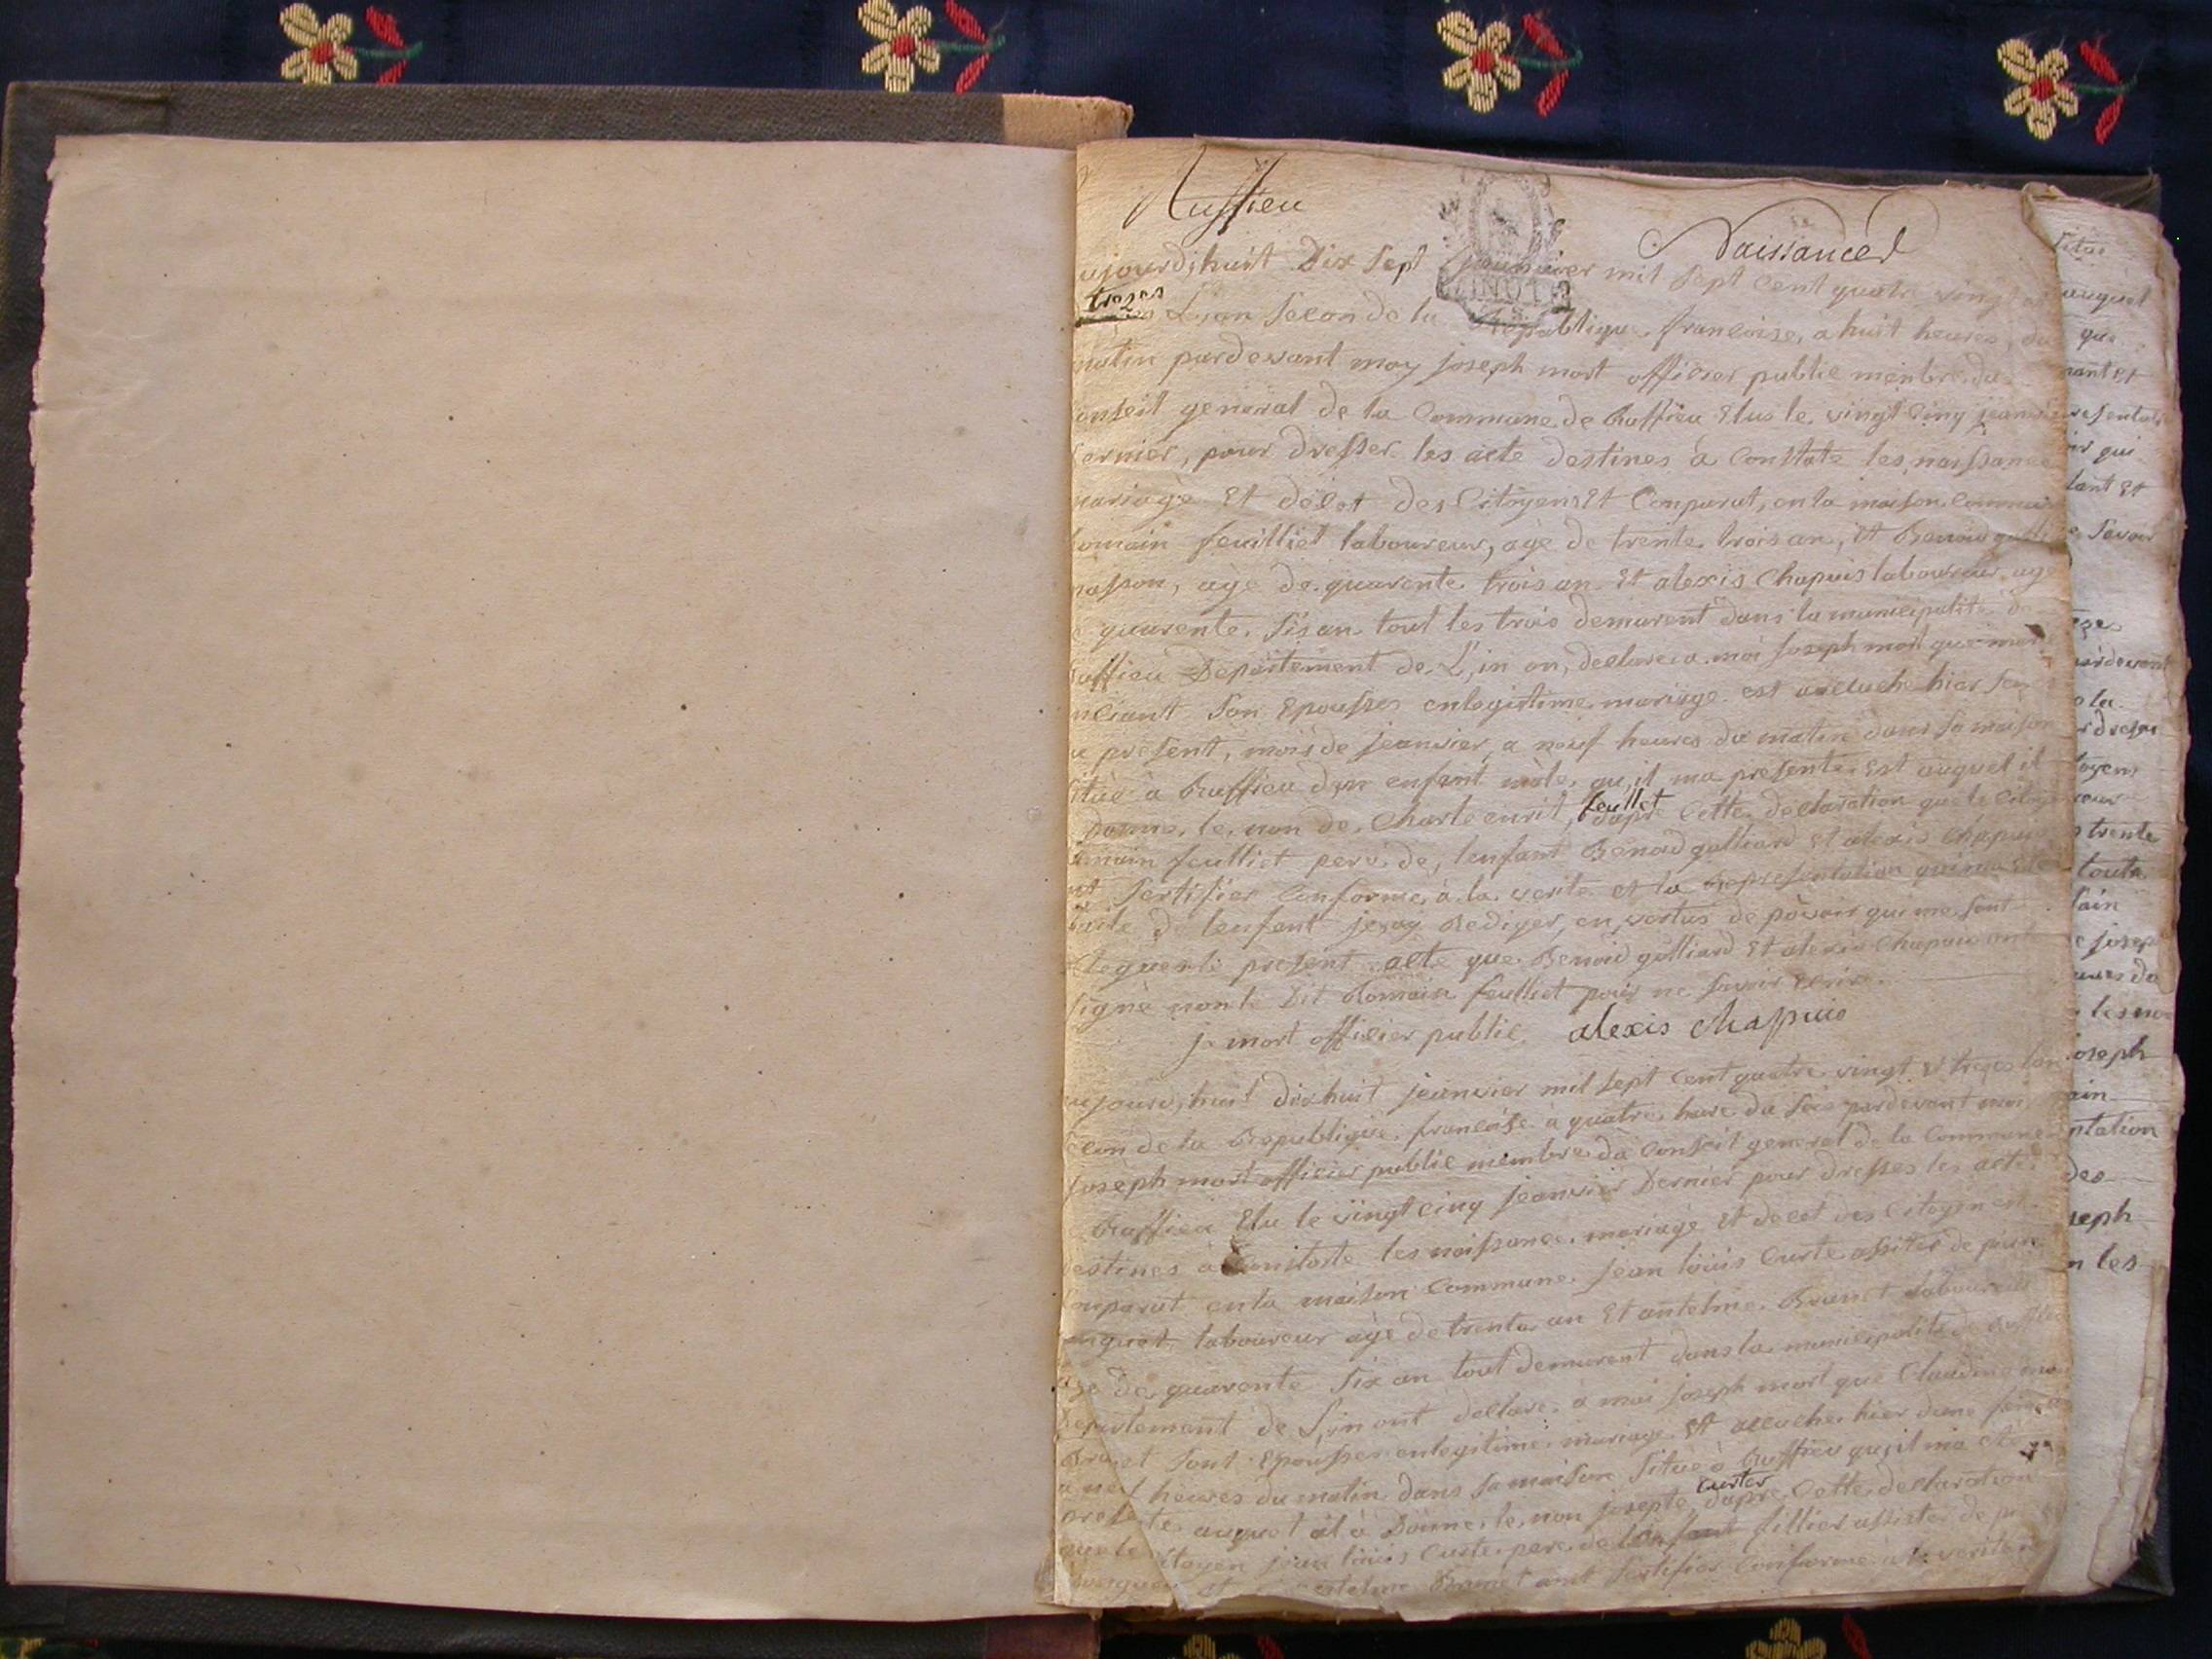 Ruffieu
Naissances
ujourd,huit Dix sept jeanvier mil sept cent quatre vingt et
trezes L,an second de la Republique francoise, a huit heures, du
matin pardevant moy joseph mort officier public menbre du
onseil general de la Commune de Ruffieu Elus le vingt cinq jeanvie
ernier, pour dresser les acte destines à Constate les naissance
ariage Et décet des Citoyens Et Comparut, en la maison Commun
omain feuilliet laboureur, agé de trente trois an, Et Benoid galli
asson, agé de quarente trois an Et alexis Chapuis laboureur age
e quarente sis an tout les trois demurent dans la municipalite de
uffieu Departement de L,in on, declare a moi Joseph mort que
son Epousse en legistime mariage est acluche hier
u present, mois de jeanvier, a neuf heures du matin dans sa maison
itué à Ruffieu d,un enfant màle, qu,il ma presente Est auquel il
Donne, le, non de, Charle enrit, feullet dapre Cette declaration que le Citoye
omain feulliet pere de, lenfant Benoid galliard Et alexis Chapuis
nt Sertifier Conforme, à la verite et la Representation qui ma ete
aite de lenfant jeay Rediger, en vertus de pövoir qui me sont
Clegues le present acte que Benoid galliard Et alexis Chapuis ont
signé non le Dit Romain feulliet pour ne savoir Ecrire.
jo mort officier public alexis Chappuis
ujourd,huit dixhuit jeanvier mil sept Cent quatre vingt et trezes lan
econ de la Republique francoise à quatre heure du soir pardevant moi
joseph mort officier public membre du Conseil general de la Commune
Ruffieu Elu le vingt cinq jeanvier Dernier pour dresses les actes
estines à Constate les naissance, mariage Et decet des Citoyen est
omparut en la maison Commune jean loüis Curte assiter de
anguet, laboureur agé de trente an Et antelme Brunet laboureur
age de quarente six an tout demurent dans la municipalite de Ruffieu
Departement de L,in ont declare a moi joseph mort que Claudine
Brunet sont Epousse en legitime mariage Est acluche hier dune
a neuf heures du matin dans sa maison Situé à Ruffieu qu,il ma ete
presente auquel il à Donne, le, non josepte, curter dapre, Cette declaration
que le Citoyen jean loüis Curte pere de lenfant fillier assister de
anguet et antelme Brunet ont Sertifier Conforme à la verite